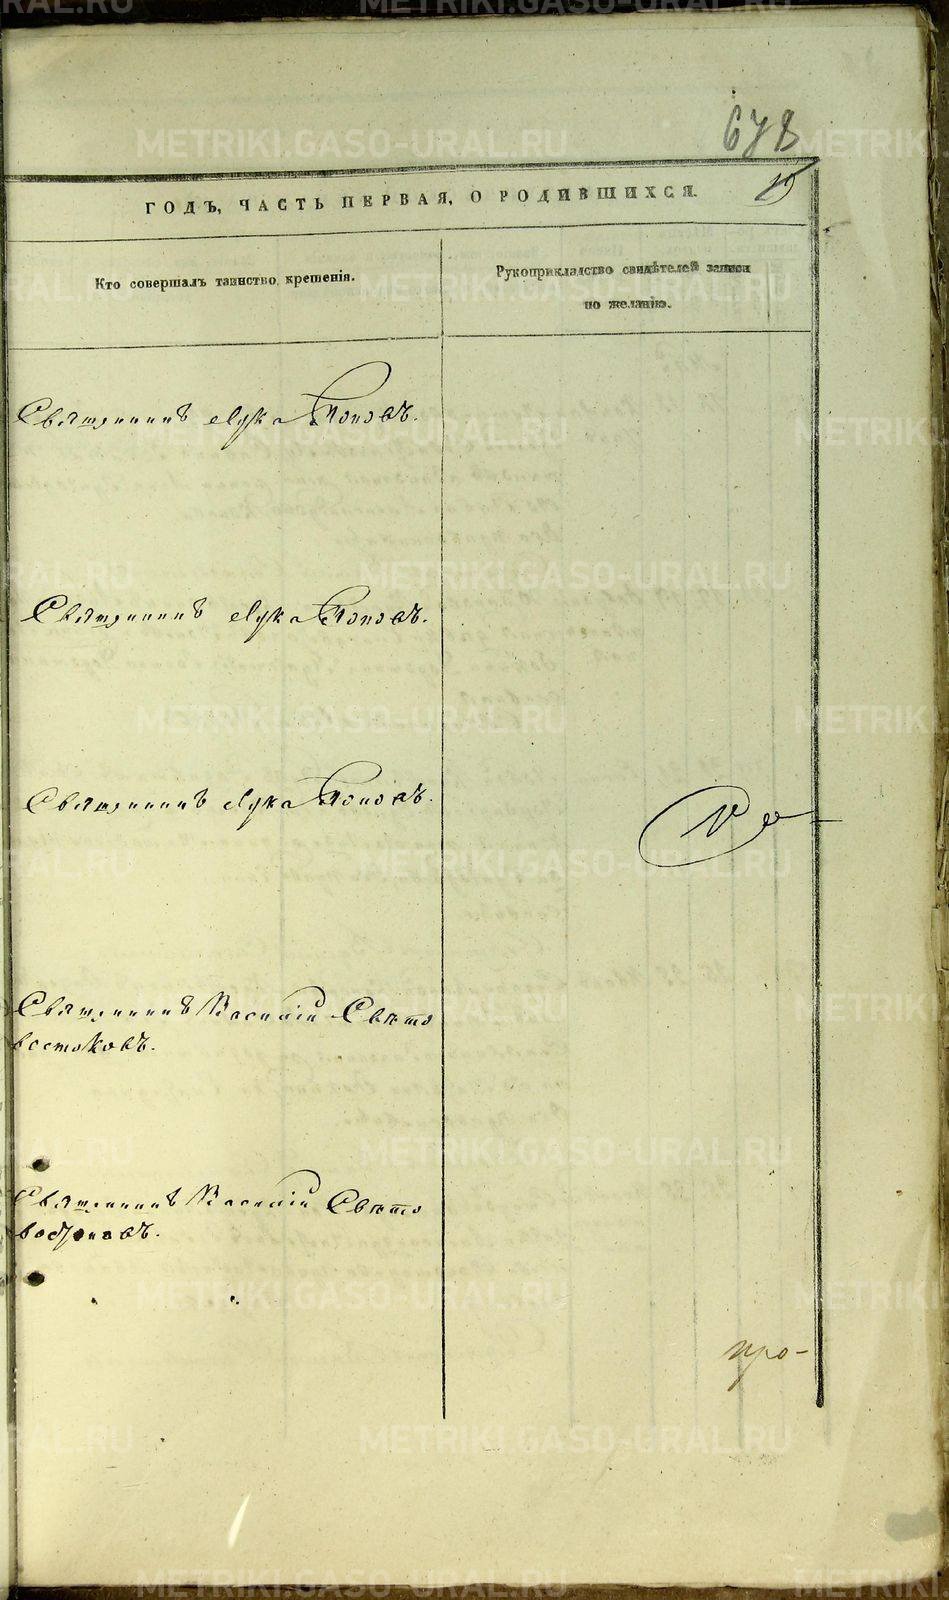 678
19
ГОДЪ, ЧАСТЬ ПЕРВАЯ, О РОДИВШИХСЯ.
Кто совершалъ таинство крещенія.
Рукоприкладство свидѣтелей записи
по желанію.
Священникъ Лука Поповъ.
Священникъ Лука Поповъ.
Священникъ Лука Поповъ.
Священникъ Василій Свѣто
востоковъ.
Священникъ Василій Свѣто
востоковъ.
про-
METRIKI.GASO-URAL.RU